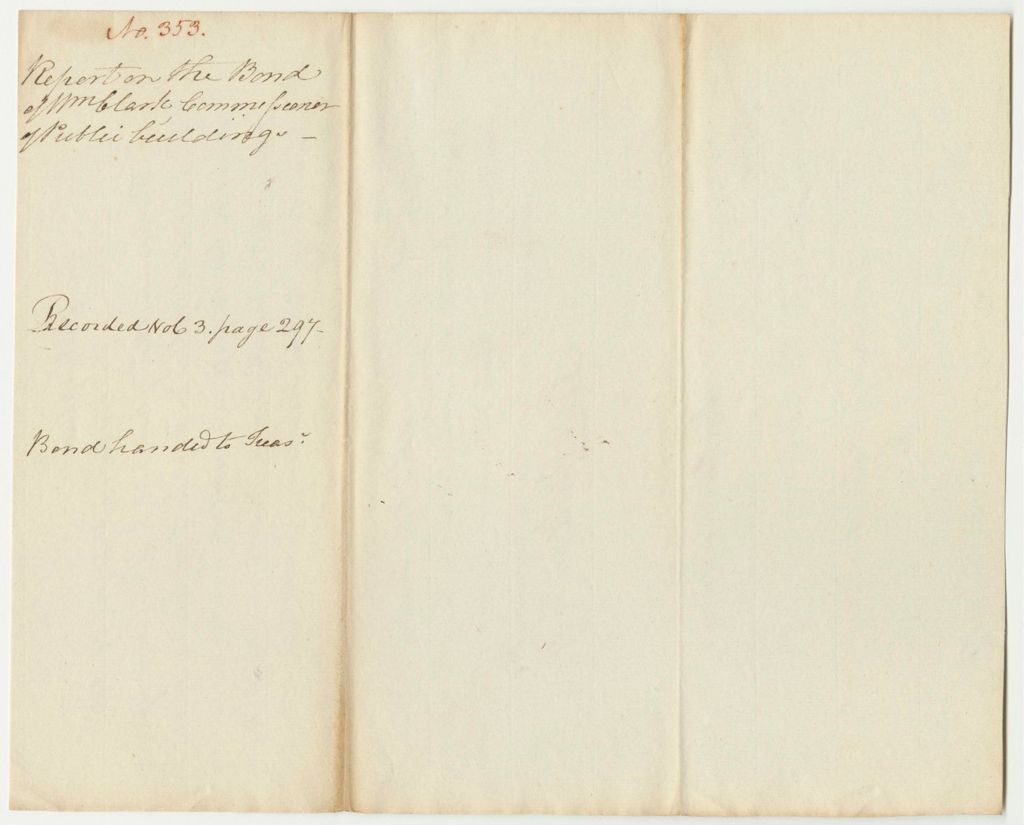 No. 353.
Report on the Bond
of Wm Clark Commissioner
of Public buildings —
Recorded Vol 3. page 297-
Bond handed to Treasr